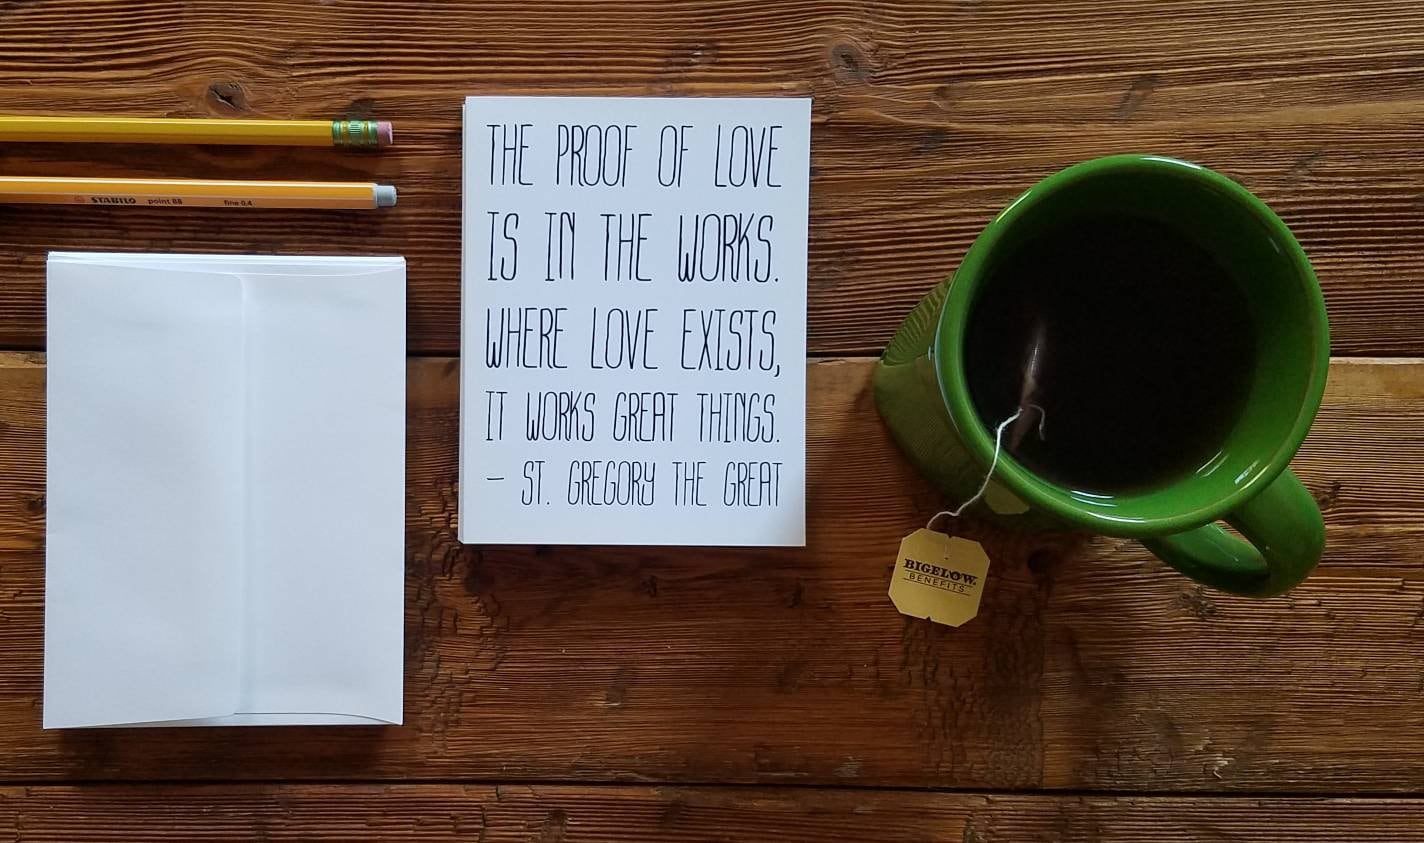 STABILO point 88 fine 0.4
THE PROOF OF LOVE
IS IN THE WORKS.
WHERE LOVE EXISTS,
IT WORKS GREAT THINGS.
– ST. GREGORY THE GREAT
BIGELOW.
BENEFITS